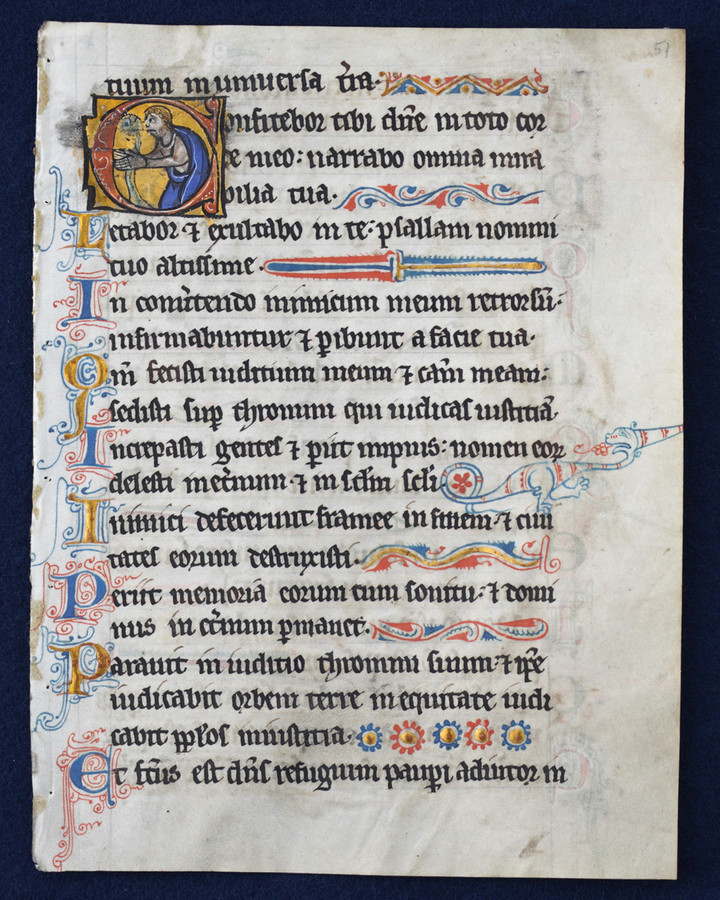 51
tuum in universa t̄ra.
Confitebor tibi dn̄e in toto cor
de meo: narrabo omnia mira
bilia tua.
Letabor ⁊ exultabo in te: psallam nomini
tuo altissime.
In conu̓tendo inimicum meum retrorsū:
infirmabuntur ⁊ ꝑibunt a facie tua.
Qm̄ fecisti iuditium meum ⁊ cām meam:
sedisti suꝑ thronum qui iudicas iustitiā.
Increpasti gentes ⁊ ꝑiit impius: nomen eoꝝ
delesti in et̓num ⁊ in sclm̄ scli̅
Inimici defecerunt framee in finem: ⁊ ciui
tates eorum destruxisti.
Periit memoria eorum cum sonitu: ⁊ domi
nus in et̓num ꝑmanet.
Parauit in iuditio thronum suum: ⁊ ip̄e
iudicabit orbem terre in equitate iudi
cabit pp̄l̓os in iustitia.
Et fc̄us est dn̄s refugium pauꝑi adiutor in